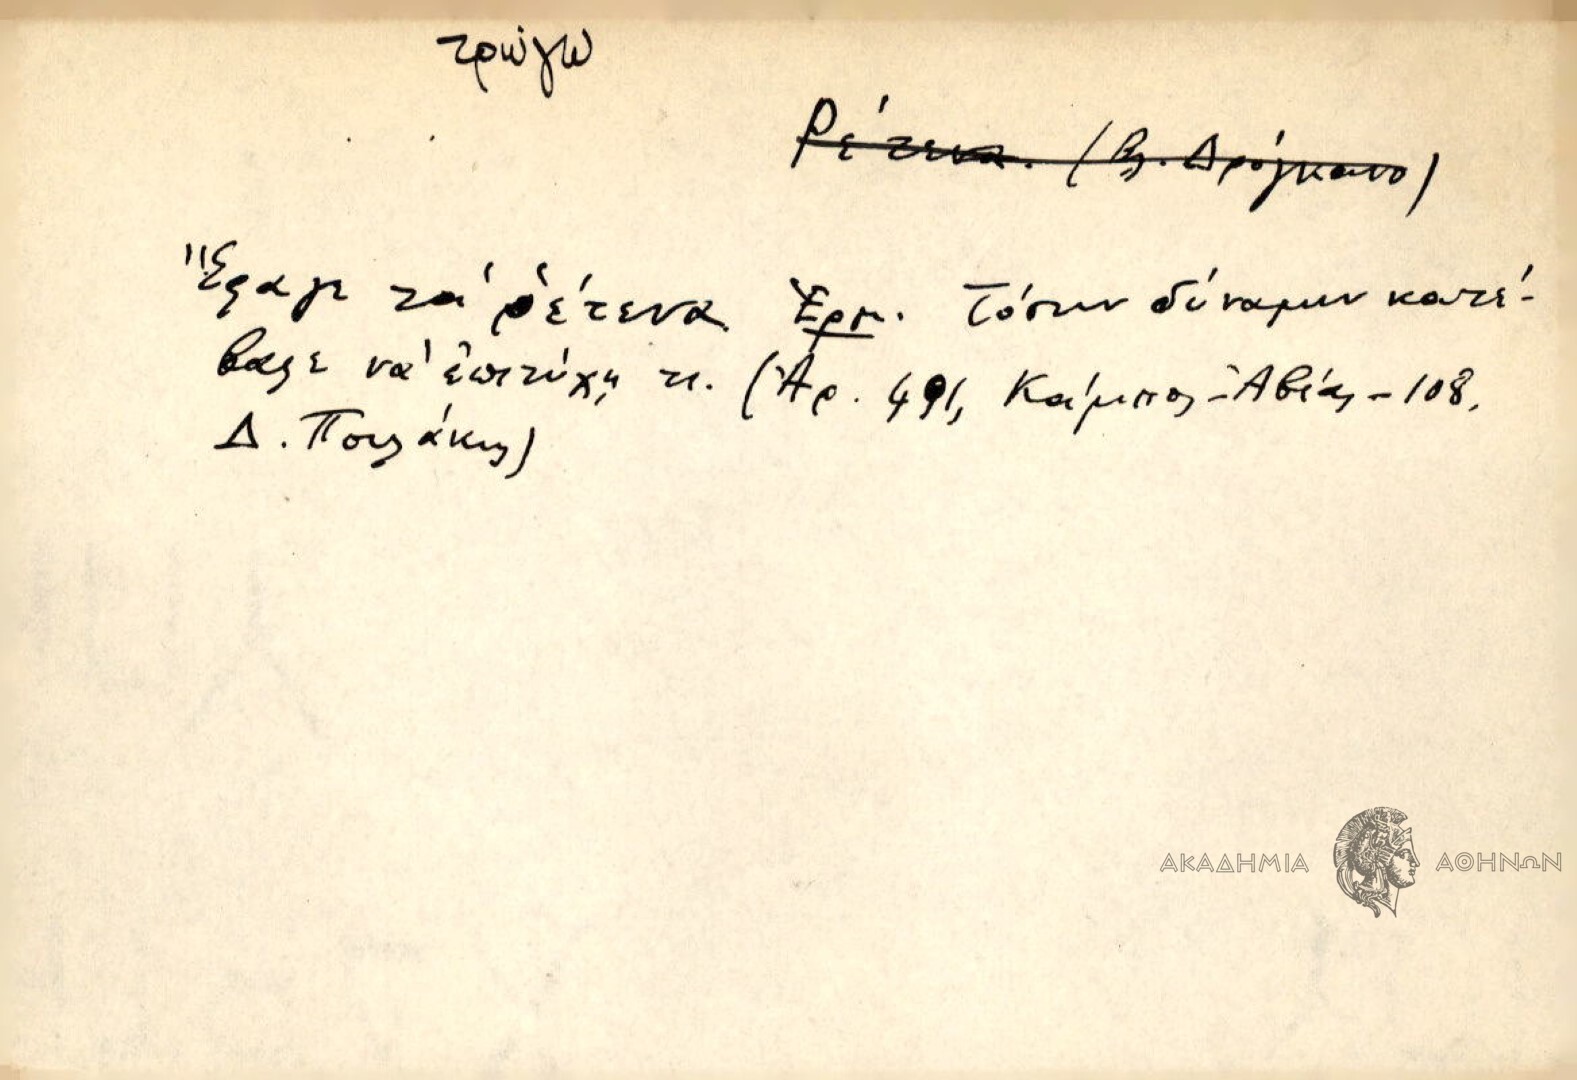 τρώγω
Ρέτενα. (βλ. Δρόγκανο)
Ἔφαγε τὰ ῥέτενα. Ἑρμ. Τόσην δύναμιν κατέ-
βαλε νὰ ἐπιτύχῃ τι. (Ἀρ. 491, Κάμπος - Ἀβίας - 108,
Δ. Πουλάκης)
ΑΚΑΔΗΜΙΑ ΑΘΗΝΩΝ